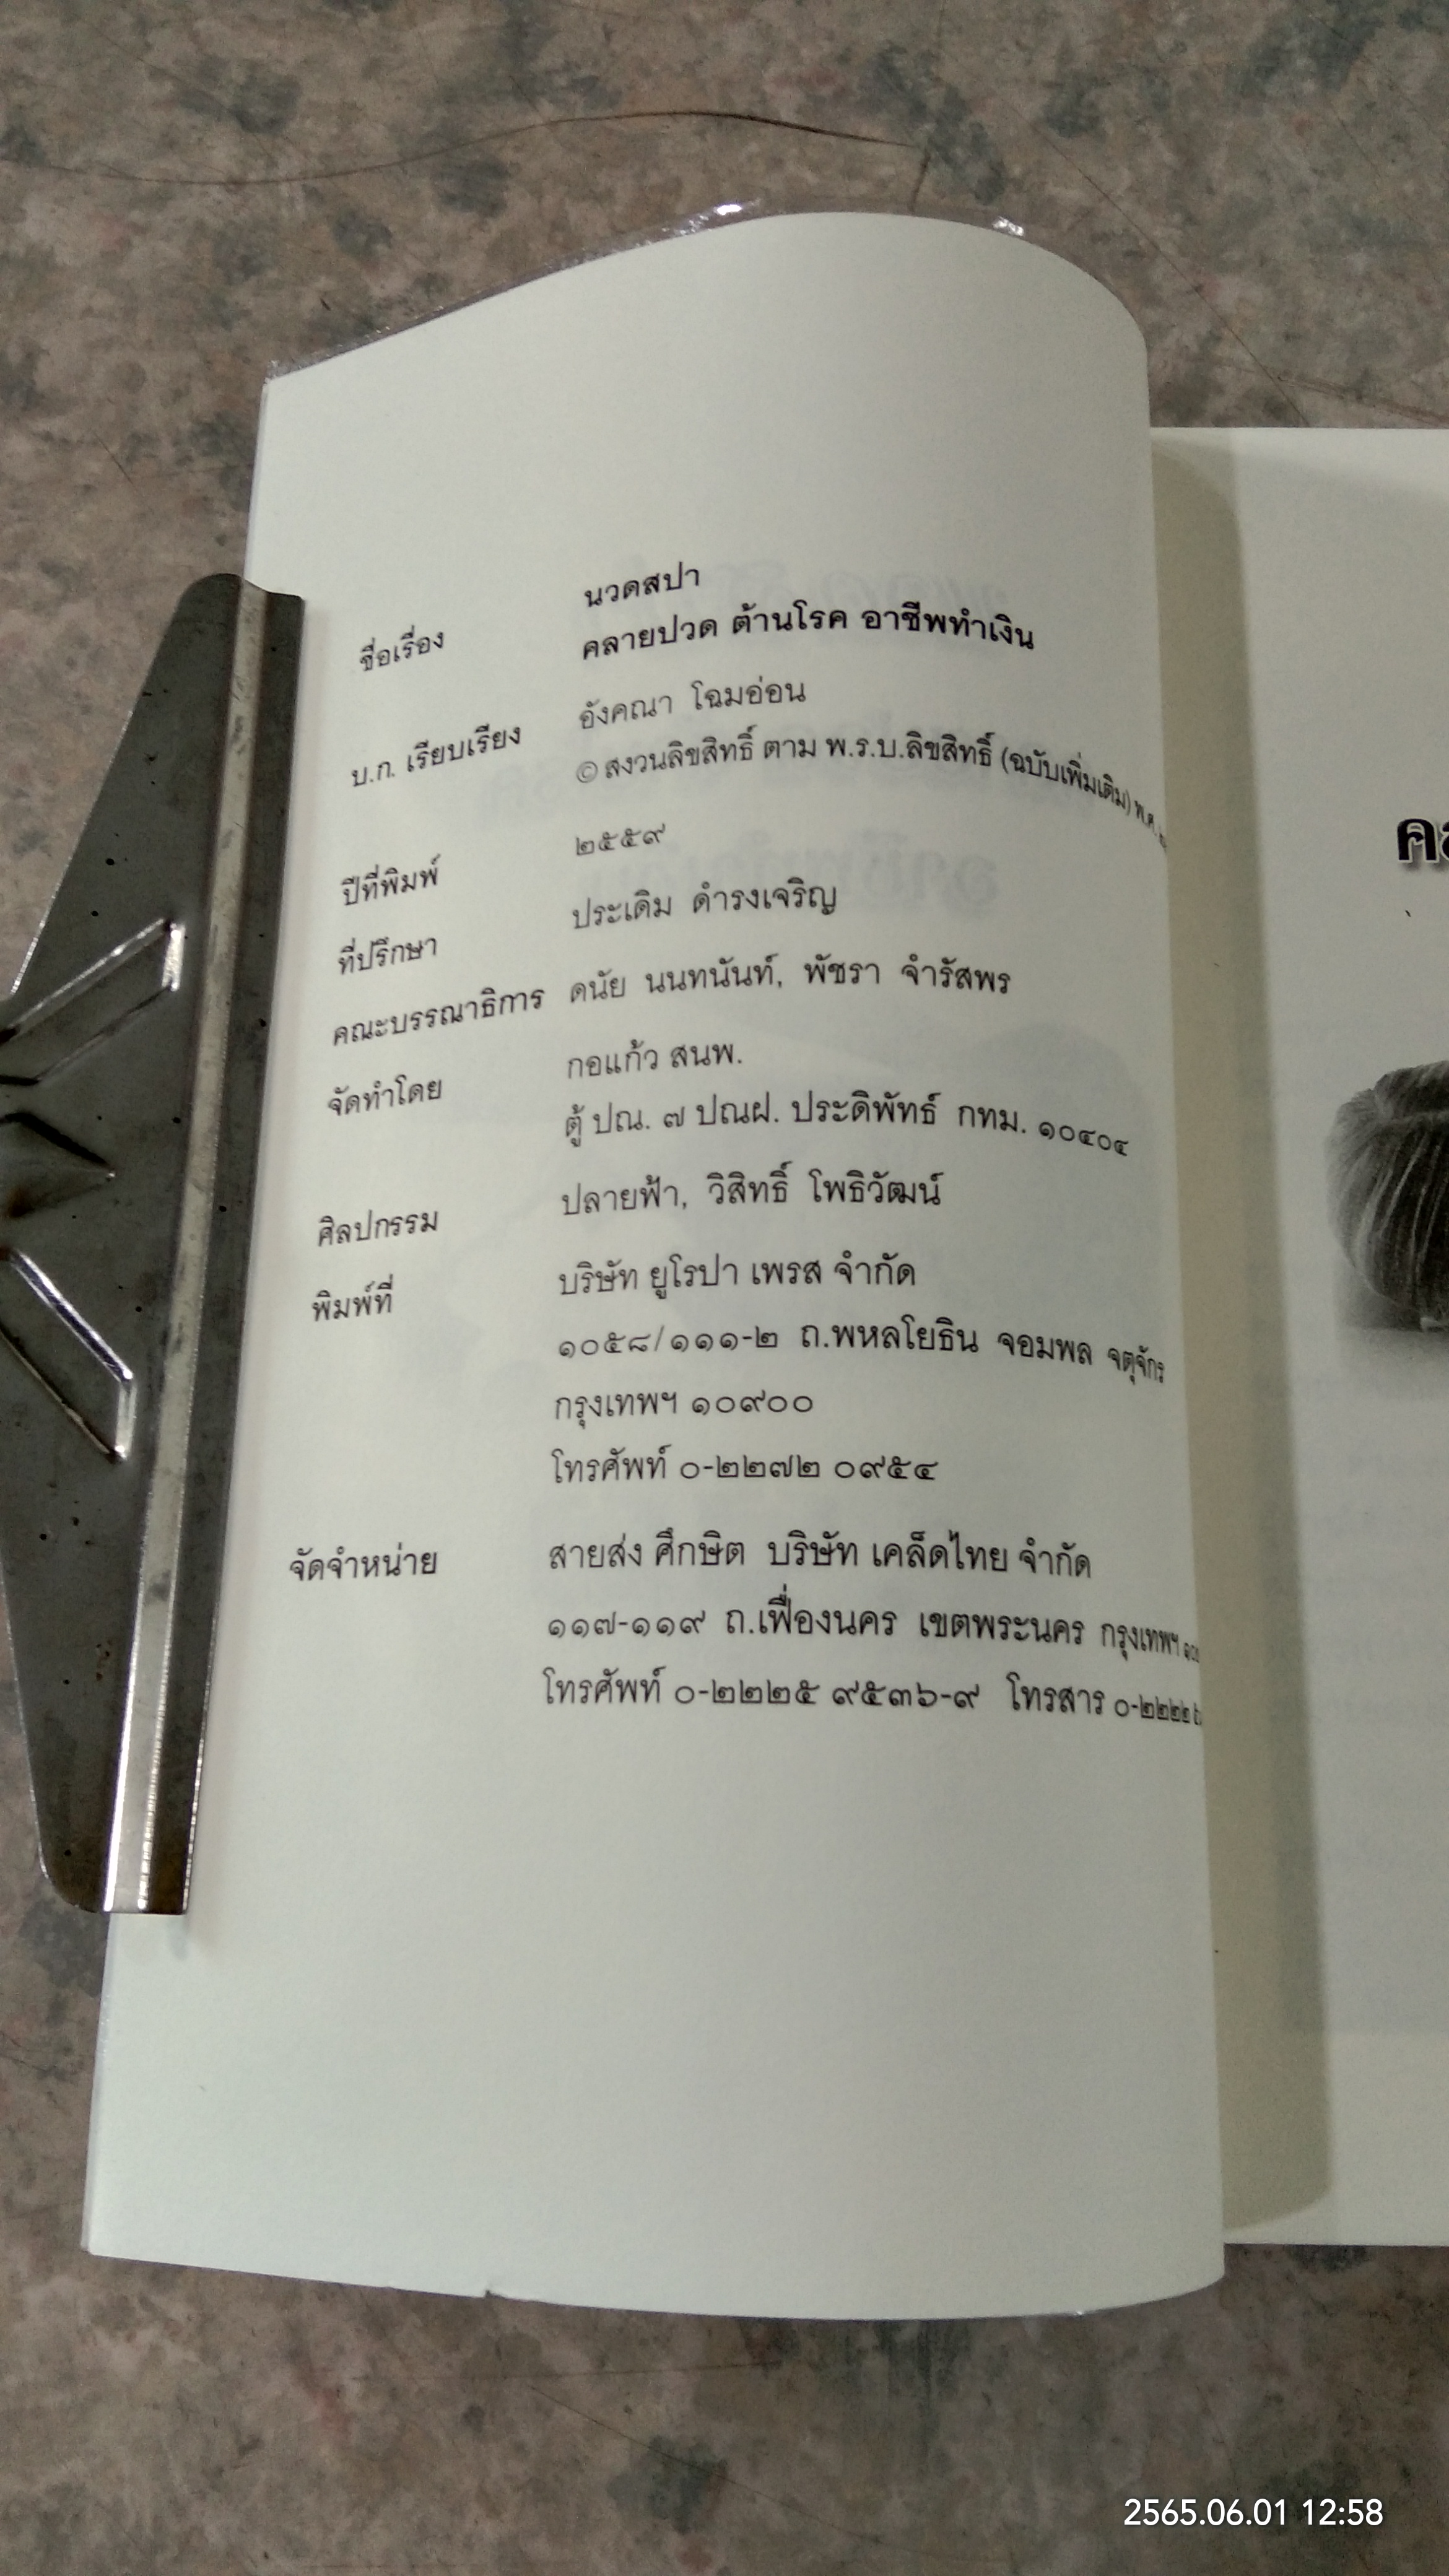 นวดสปา
ชื่อเรื่อง คลายปวด ต้านโรค อาชีพทำเงิน
บ.ก. เรียบเรียง อังคณา โฉมอ่อน
© สงวนลิขสิทธิ์ ตาม พ.ร.บ.ลิขสิทธิ์ (ฉบับเพิ่มเติม) พ.ศ.
ปีที่พิมพ์ ๒๕๕๙
ที่ปรึกษา ประเดิม ดำรงเจริญ
คณะบรรณาธิการ ดนัย นนทนันท์, พัชรา จำรัสพร
จัดทำโดย กอแก้ว สนพ.
ตู้ ปณ. ๗ ปณฝ. ประดิพัทธ์ กทม. ๑๐๔๐๔
ศิลปกรรม ปลายฟ้า, วิสิทธิ์ โพธิวัฒน์
พิมพ์ที่ บริษัท ยูโรปา เพรส จำกัด
๑๐๕๘/๑๑๑-๒ ถ.พหลโยธิน จอมพล จตุจักร
กรุงเทพฯ ๑๐๙๐๐
โทรศัพท์ ๐-๒๒๗๒ ๐๙๕๔
จัดจำหน่าย สายส่ง ศึกษิต บริษัท เคล็ดไทย จำกัด
๑๑๗-๑๑๙ ถ.เฟื่องนคร เขตพระนคร กรุงเทพฯ
โทรศัพท์ ๐-๒๒๒๕ ๙๕๓๖-๙ โทรสาร ๐-๒๒๒๒
2565.06.01 12:58